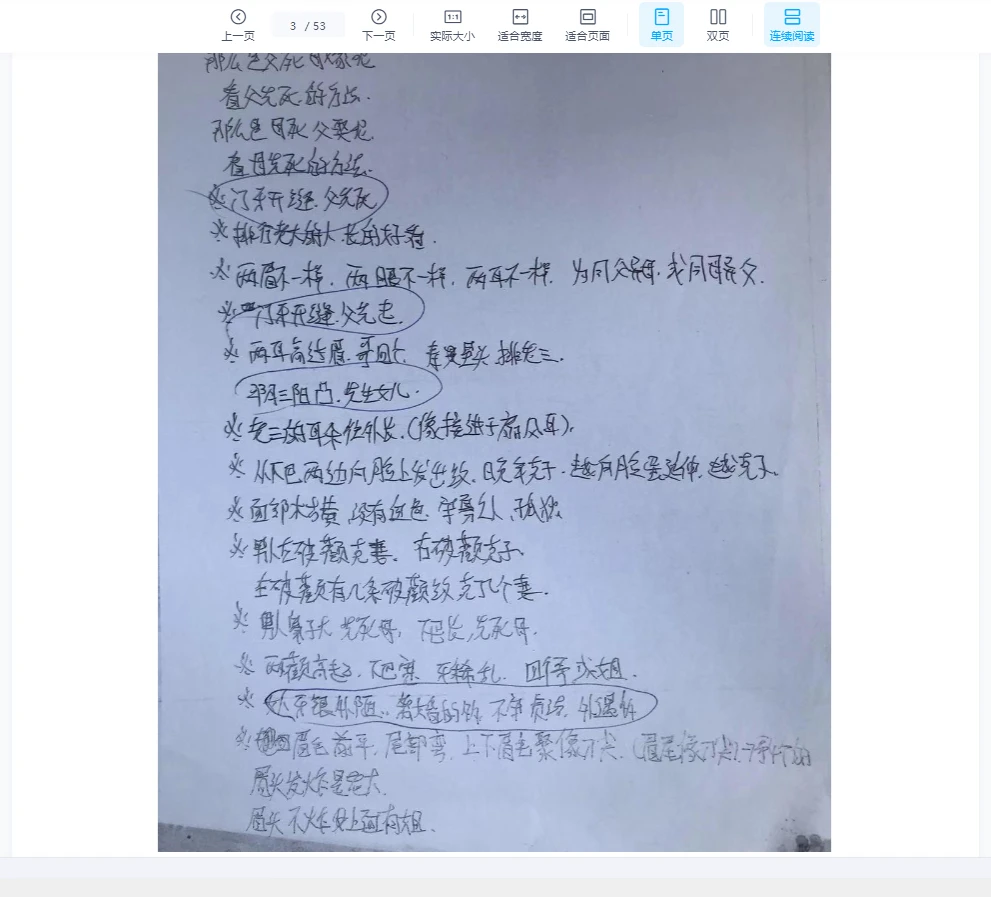 上一页 3 / 53 下一页 实际大小 适合宽度 适合页面 单页 双页 连续阅读
那么是父死母嫁呢
看父先死的方法.
那么是母死父娶呢
看母先死的方法.
※门牙开缝.父先死
※排行老大的人长的好看.
※两眉不一样.两眼不一样.两耳不一样.为同父异母.或同母异父.
※门牙开缝.父先走.
※两耳高过眉.哥回个 排老三.
阴三阳凸.先生女儿.
※老三的耳朵往外长.(像接近于扇风耳).
※从下巴两边向脸上发出纹.晚年克子.越向脸蛋延伸.越克子.
※面部木黄.没有血色.孤独
※男人左破颧克妻.右破颧克子.
左破颧有几条破颧纹克几个妻.
※男人鼻子大先死母.下巴长,先死母.
※两颧高起.下巴寒.牙稀乱.回等或姐.
※女人牙龈外陋.离婚的妇.不守贞洁.外遇
※眉毛前平.尾部弯.上下眉毛聚像刀尖.(眉尾像刀尖)
眉头发炸是老大.
眉头不炸.上面有姐.